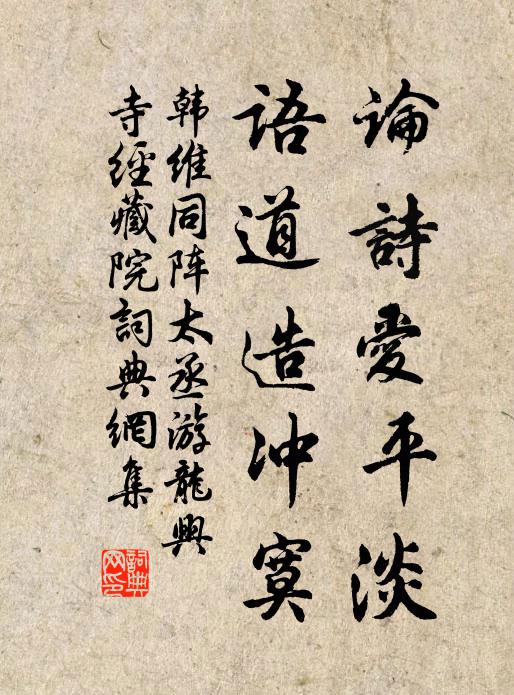 論詩愛平淡
語道造沖寞
韩維同阵太丞游龍興
寺經藏院詞典網集
詞典
网印